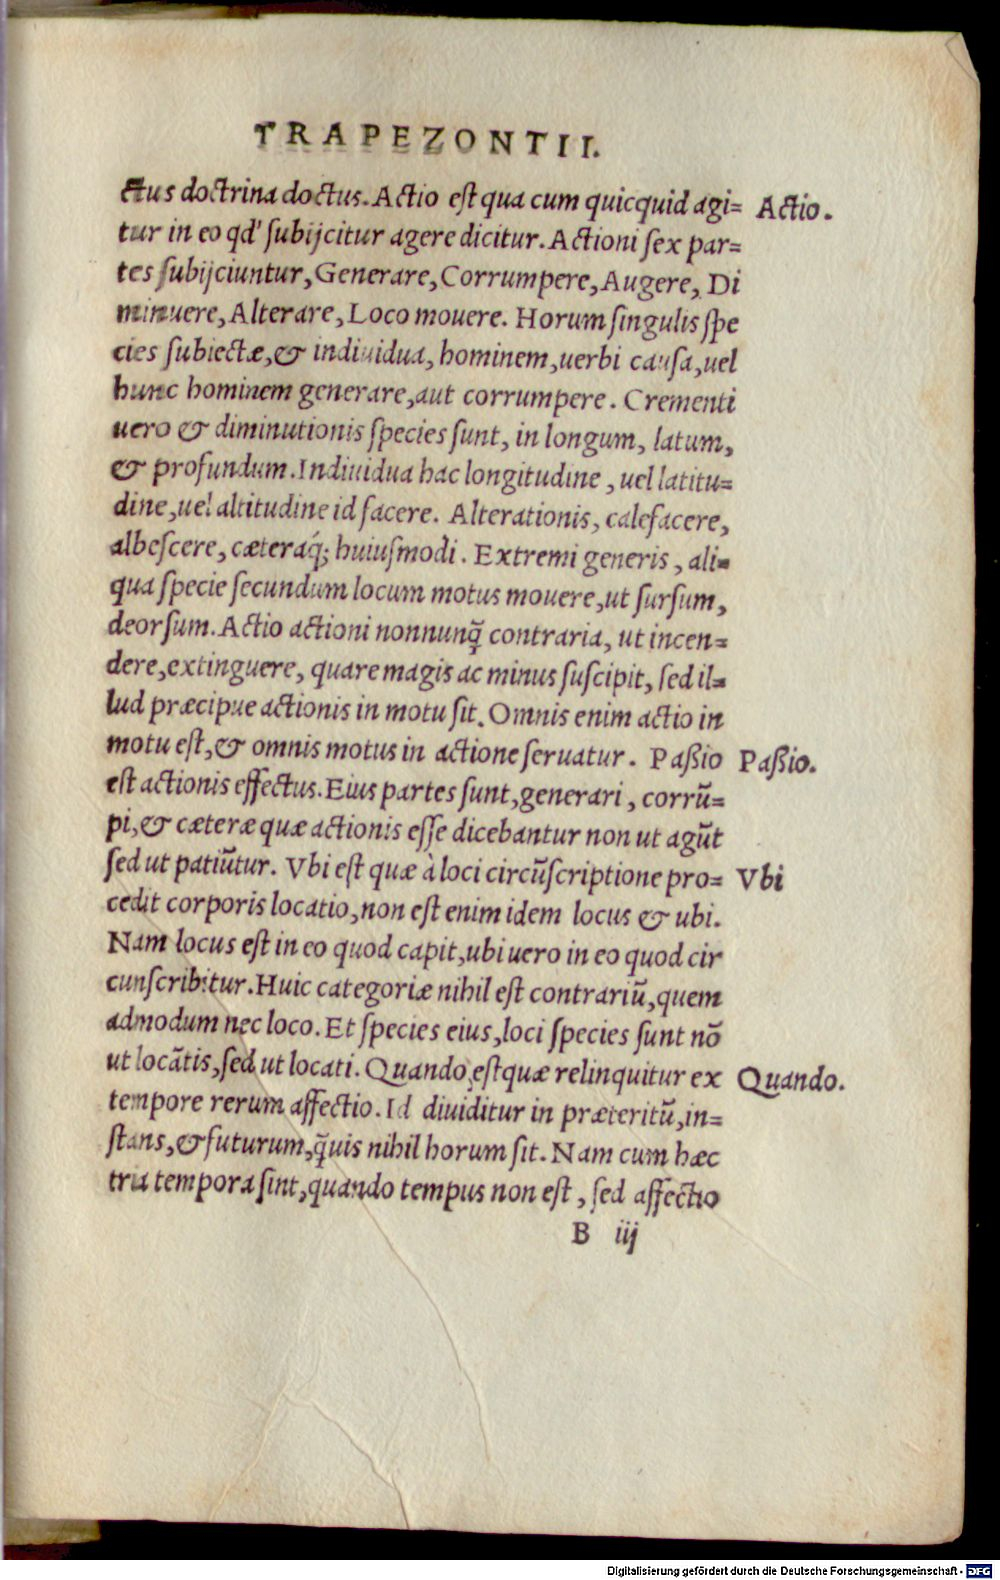 TRAPEZONTII.
ctus doctrina doctus. Actio est qua cum quicquid agi= Actio.
tur in eo qd' subijcitur agere dicitur. Actioni sex par=
tes subijciuntur, Generare, Corrumpere, Augere, Di
minuere, Alterare, Loco mouere. Horum singulis spe
cies subiectæ, & indiuidua, hominem, uerbi causa, uel
hunc hominem generare, aut corrumpere. Crementi
uero & diminutionis species sunt, in longum, latum,
& profundum. Indiuidua hac longitudine, uel latitu=
dine, uel altitudine id facere. Alterationis, calefacere,
albescere, cæteraq́; huiusmodi. Extremi generis, ali=
qua specie secundum locum motus mouere, ut sursum,
deorsum. Actio actioni nonnunq̃ contraria, ut incen=
dere, extinguere, quare magis ac minus suscipit, sed il=
lud præcipue actionis in motu sit. Omnis enim actio in
motu est, & omnis motus in actione seruatur. Paßio Paßio.
est actionis effectus. Eius partes sunt, generari, corrũ=
pi, & cæteræ quæ actionis esse dicebantur non ut agũt
sed ut patiũtur. Vbi est quæ à loci circũscriptione pro= Vbi
cedit corporis locatio, non est enim idem locus & ubi.
Nam locus est in eo quod capit, ubi uero in eo quod cir
cunscribitur. Huic categoriæ nihil est contrariũ, quem
admodum nec loco. Et species eius, loci species sunt nõ
ut locãtis, sed ut locati. Quando, est quæ relinquitur ex Quando.
tempore rerum affectio. Id diuiditur in præteritũ, in=
stans, & futurum, q̃uis nihil horum sit. Nam cum hæc
tria tempora sint, quando tempus non est, sed affectio
B iij
Digitalisierung gefördert durch die Deutsche Forschungsgemeinschaft - DFG